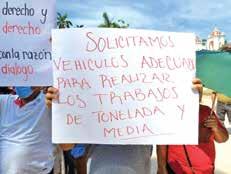 derecho y
derecho
con la razón
dialogo
SOLICITAMOS
VEHICULOS ADECUADOS
PARA REALIZAR
LOS TRABAJOS
DE TONELADA Y
MEDIA